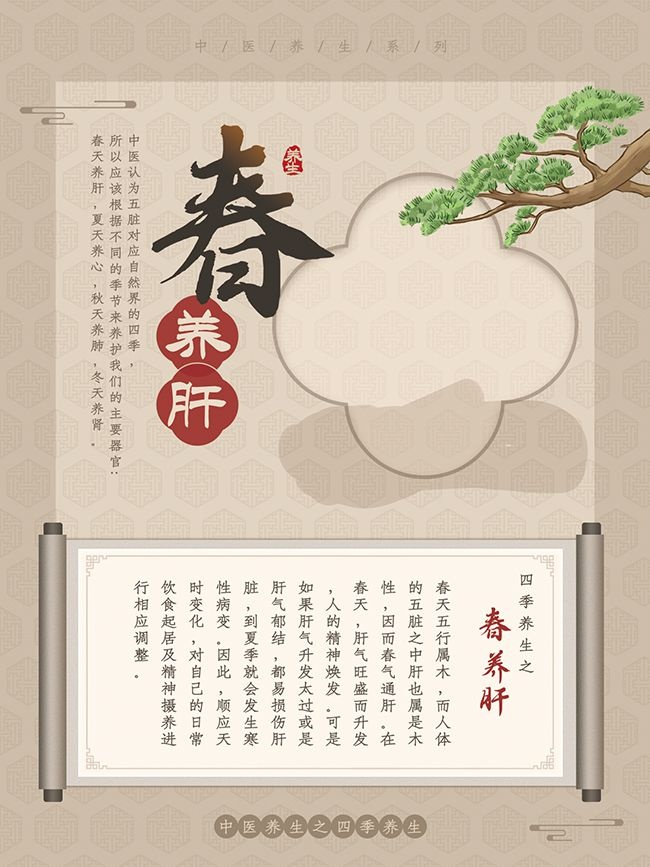 中/医/养/生/系/列
春
养生
养
肝
中医认为五脏对应自然界的四季，
所以应该根据不同的季节来养护我们的主要器官：
春天养肝，夏天养心，秋天养肺，冬天养肾。
四季养生之
春养肝
春天五行属木，而人体
的五脏之中肝也属是木
性，因而春气通肝。在
春天，肝气旺盛而升发
，人的精神焕发。可是
如果肝气升发太过或是
肝气郁结，都易损伤肝
脏，到夏季就会发生寒
性病变。因此，顺应天
时变化，对自己的日常
饮食起居及精神摄养进
行相应调整。
中医养生之四季养生